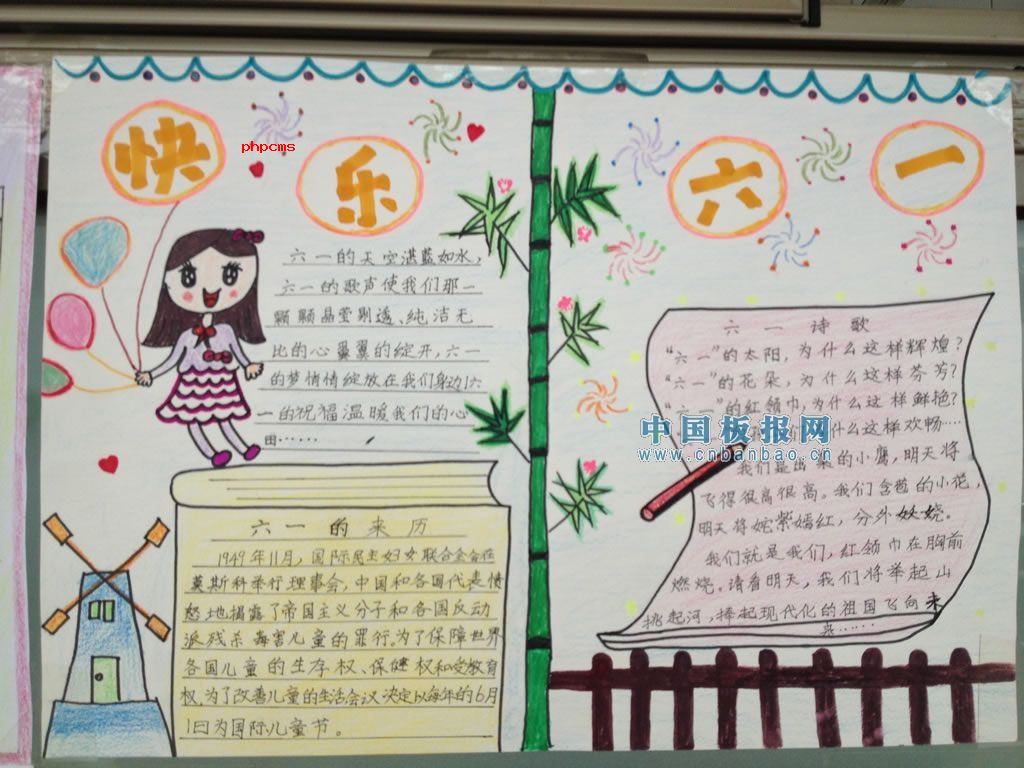 快乐六一
phpcms
六一的天空湛蓝如水,
六一的歌声使我们那一
颗颗晶莹剔透、纯洁无
比的心翼翼的绽开,六一
的梦悄悄绽放在我们身边六
一的祝福温暖我们的心
田……
六一的来历
1949年11月,国际民主妇女联合会在
莫斯科举行理事会,中国和各国代表愤
怒地揭露了帝国主义分子和各国反动
派残杀毒害儿童的罪行为了保障世界
各国儿童的生存权、保健权和受教育
权,为了改善儿童的生活会议决定以每年的6月
1日为国际儿童节。
六一诗歌
“六一”的太阳,为什么这样辉煌?
“六一”的花朵,为什么这样芬芳?
“六一”的红领巾,为什么这样鲜艳?
什么这样欢畅……
中国板报网
www.cnbanbao.cn
我们是出巢的小鹰,明天将
飞得很高很高。我们含苞的小花,
明天将姹紫嫣红,分外妖娆。
我们就是我们,红领巾在胸前
燃烧。请看明天,我们将举起山
挑起河,捧起现代化的祖国飞向未
来……